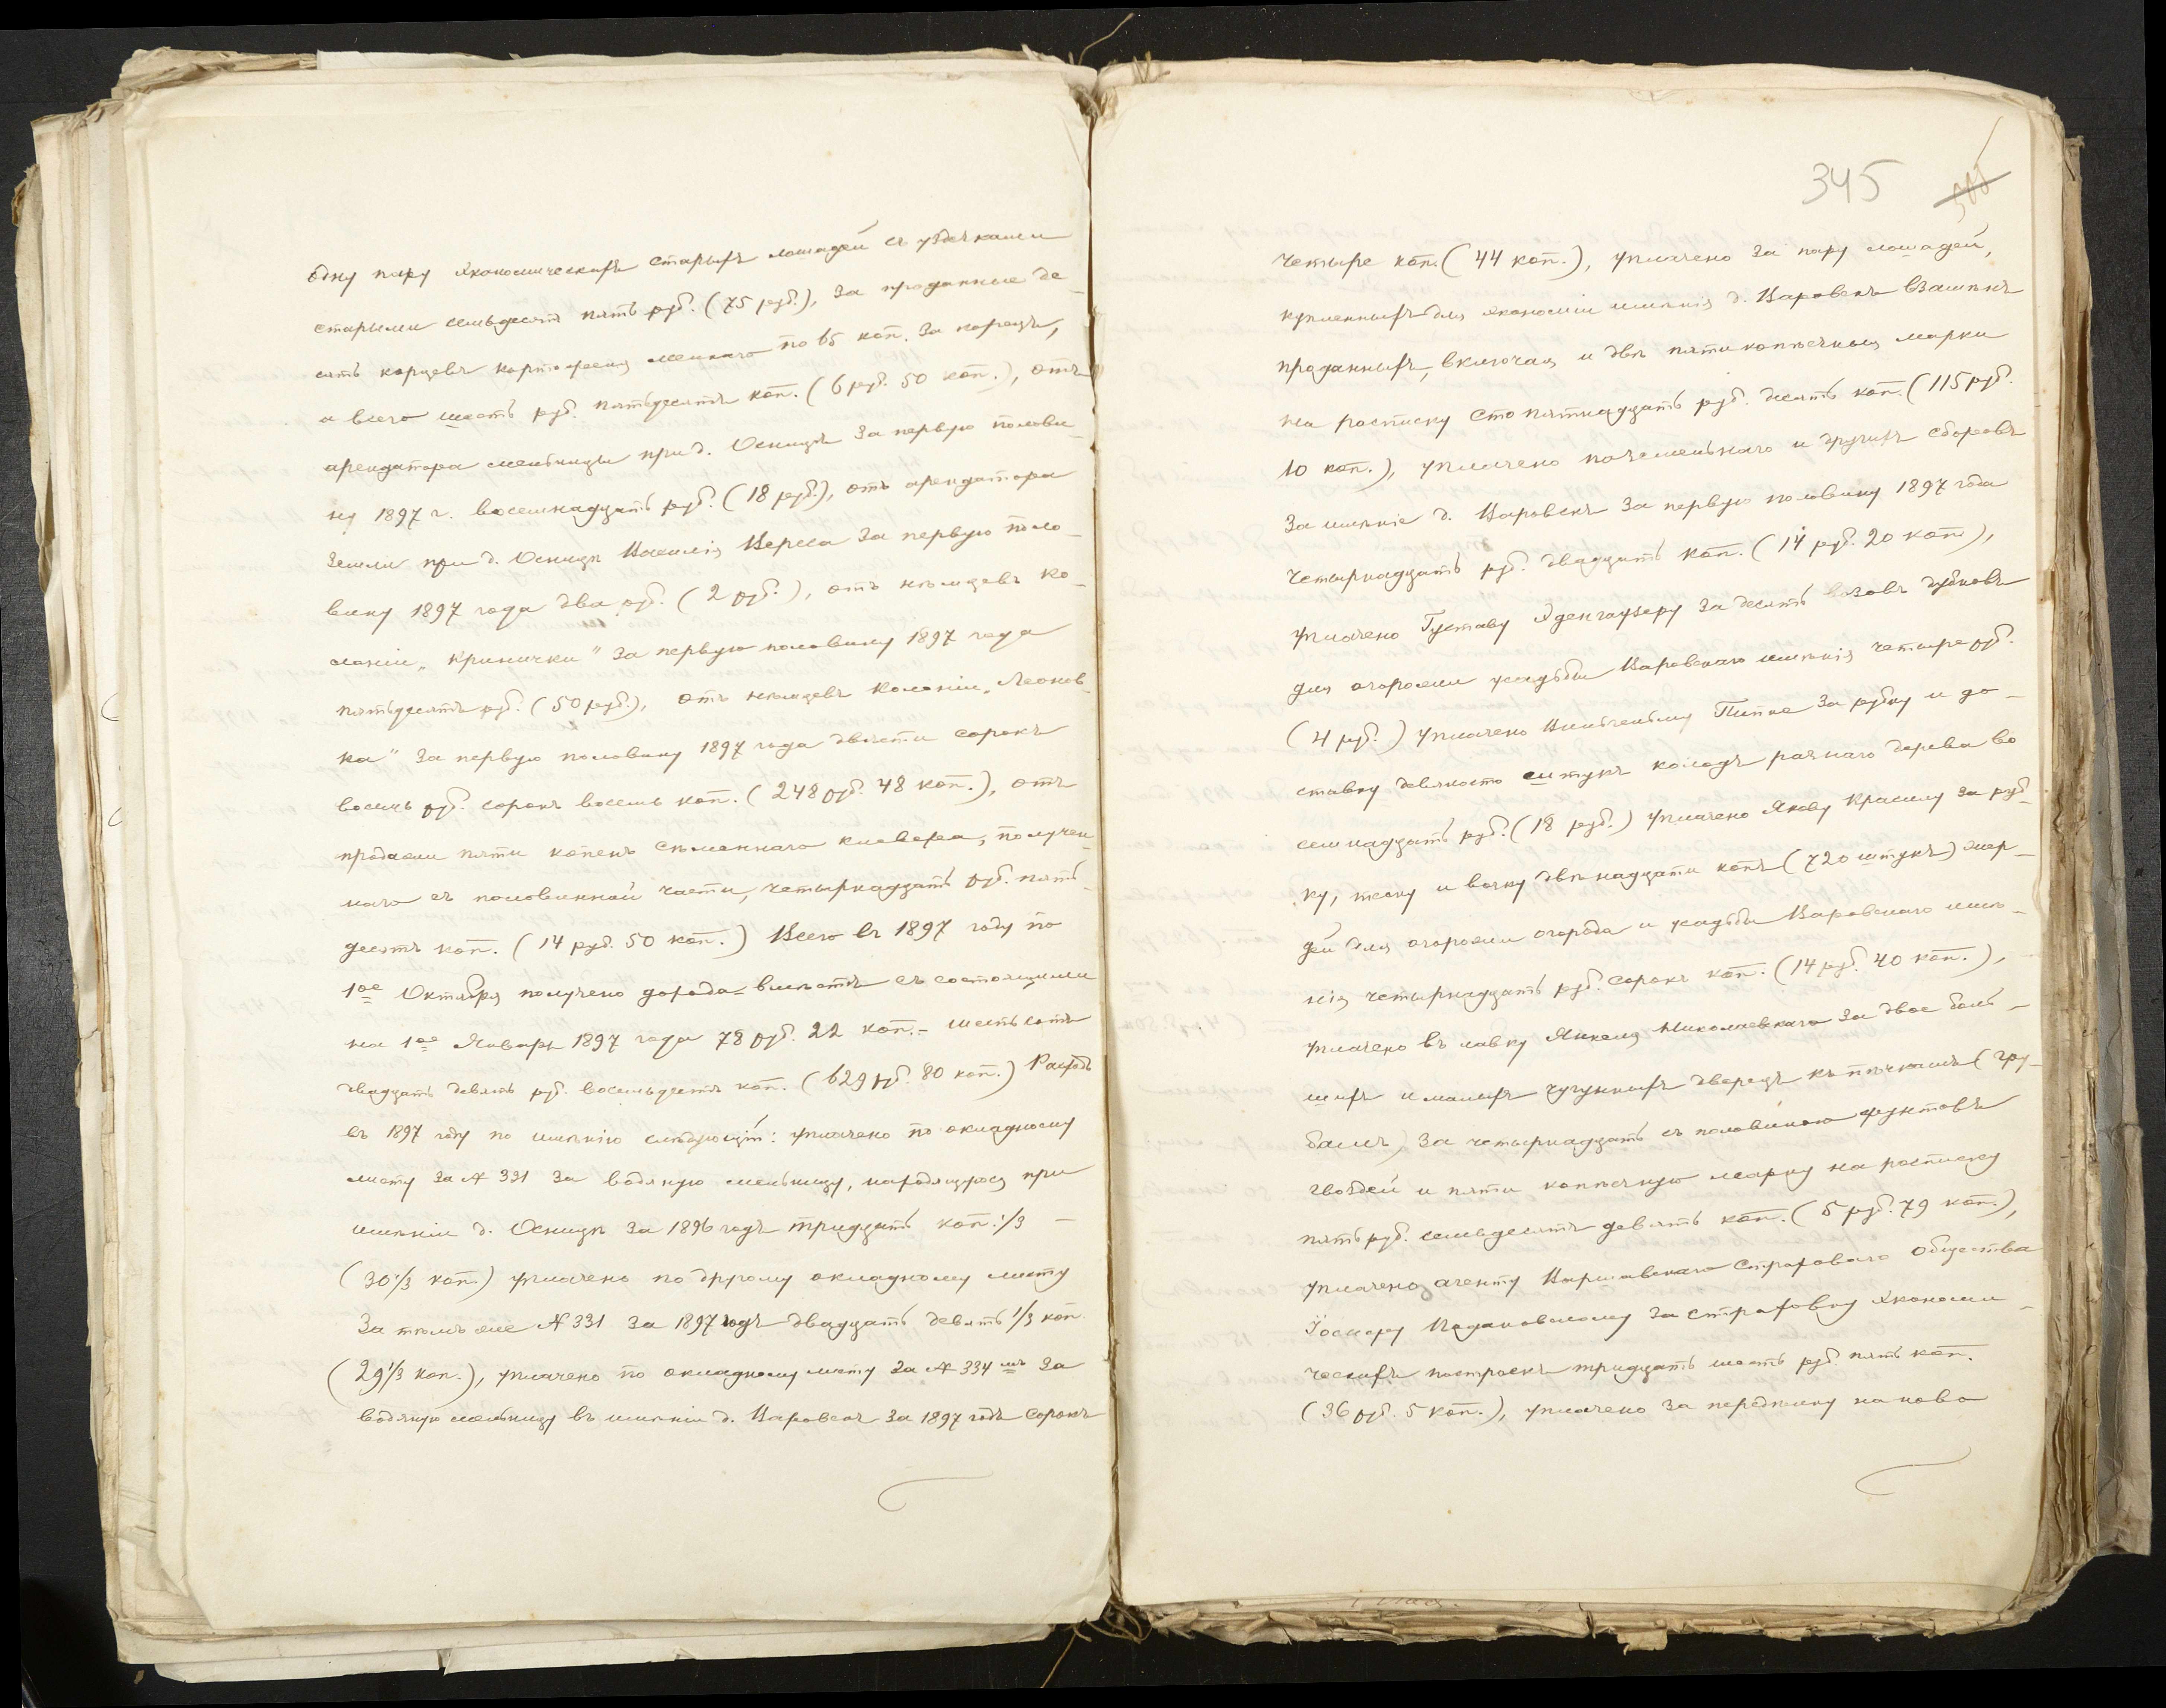 одну пару экономическихъ старыхъ лошадей съ уздечками
старыми семьдесятъ пять руб. (75 руб.), за проданные де-
сять корцевъ картофеля мелкаго по 65 коп. за корецъ,
а всего шесть руб. пятьдесятъ коп. (6 руб. 50 коп.), отъ
арендатора мельницы при д. Осницѣ за первую полови-
ну 1897 г. восемнадцать руб. (18 руб.), отъ арендатора
земли при д. Осницѣ Василія Вереса за первую поло-
вину 1897 года два руб. (2 руб.), отъ нѣмцевъ ко-
лоніи „Кринички" за первую половину 1897 года
пятьдесятъ руб. (50 руб.), отъ нѣмцевъ колоніи „Леонов-
ка" за первую половину 1897 года двѣсти сорокъ
восемь руб. сорокъ восемь коп. (248 руб. 48 коп.), отъ
продажи пяти копенъ сѣменнаго клевера, получен-
наго съ половинной части, четырнадцать руб. пять-
десятъ коп. (14 руб. 50 коп.) Всего въ 1897 году по
1ое Октября получено дохода вмѣстѣ съ состоящими
на 1ое Января 1897 года 78 руб. 22 коп. – шестьсотъ
двадцать девять руб. восемьдесятъ коп. (629 руб. 80 коп.) Расходъ
въ 1897 году по имѣнію слѣдующій: уплачено по окладному
листу за № 331 за водяную мельницу, находящуюся при
имѣніи д. Осницѣ за 1896 годъ тридцать коп. 1/3 –
(30 1/3 коп.) уплачено по другому окладному листу
за тѣмъ же № 331 за 1897 годъ двадцать девять 1/3 коп.
(29 1/3 коп.), уплачено по окладному листу за № 334мъ за
водяную мельницу въ имѣніи д. Варовскъ за 1897 годъ сорокъ
345
четыре коп. (44 коп.), уплачено за пару лошадей,
купленныхъ для экономіи имѣнія д. Варовскъ взамѣнъ
проданныхъ, включая и двѣ пятикопѣечныя марки
на росписку сто пятнадцать руб. десять коп. (115 руб.
10 коп.), уплачено поземельнаго и другихъ сборовъ
за имѣніе д. Варовскъ за первую половину 1897 года
четырнадцать руб. двадцать коп. (14 руб. 20 коп.),
уплачено Густаву за десять возовъ дубковъ
для огорожи усадьбы Варовскаго имѣнія четыре руб.
(4 руб.) уплачено Вильгельму Пипке за рубку и до-
ставку девяносто штукъ колодъ разнаго дерева во
семнадцать руб. (18 руб.) уплачено Якову Красилу за руб-
ку, теску и возку двѣнадцати копъ (720 штукъ) жер-
дей для огорожи огорода и усадьбы Варовскаго имѣ-
нія четырнадцать руб. сорокъ коп. (14 руб. 40 коп.),
уплачено въ лавку Янкеля Николаевскаго за двое боль-
шихъ и малыхъ чугунныхъ дверецъ къ печкамъ (гру-
бамъ) за четырнадцать съ половиною фунтовъ
гвоздей и пяти копѣечную марку на росписку
пять руб. семьдесятъ девять коп. (5 руб. 79 коп.),
уплачено агенту Варшавскаго Страховаго Общества
за страховку экономи-
ческихъ построекъ тридцать шесть руб. пять коп.
(36 руб. 5 коп.), уплачено за передѣлку на ново